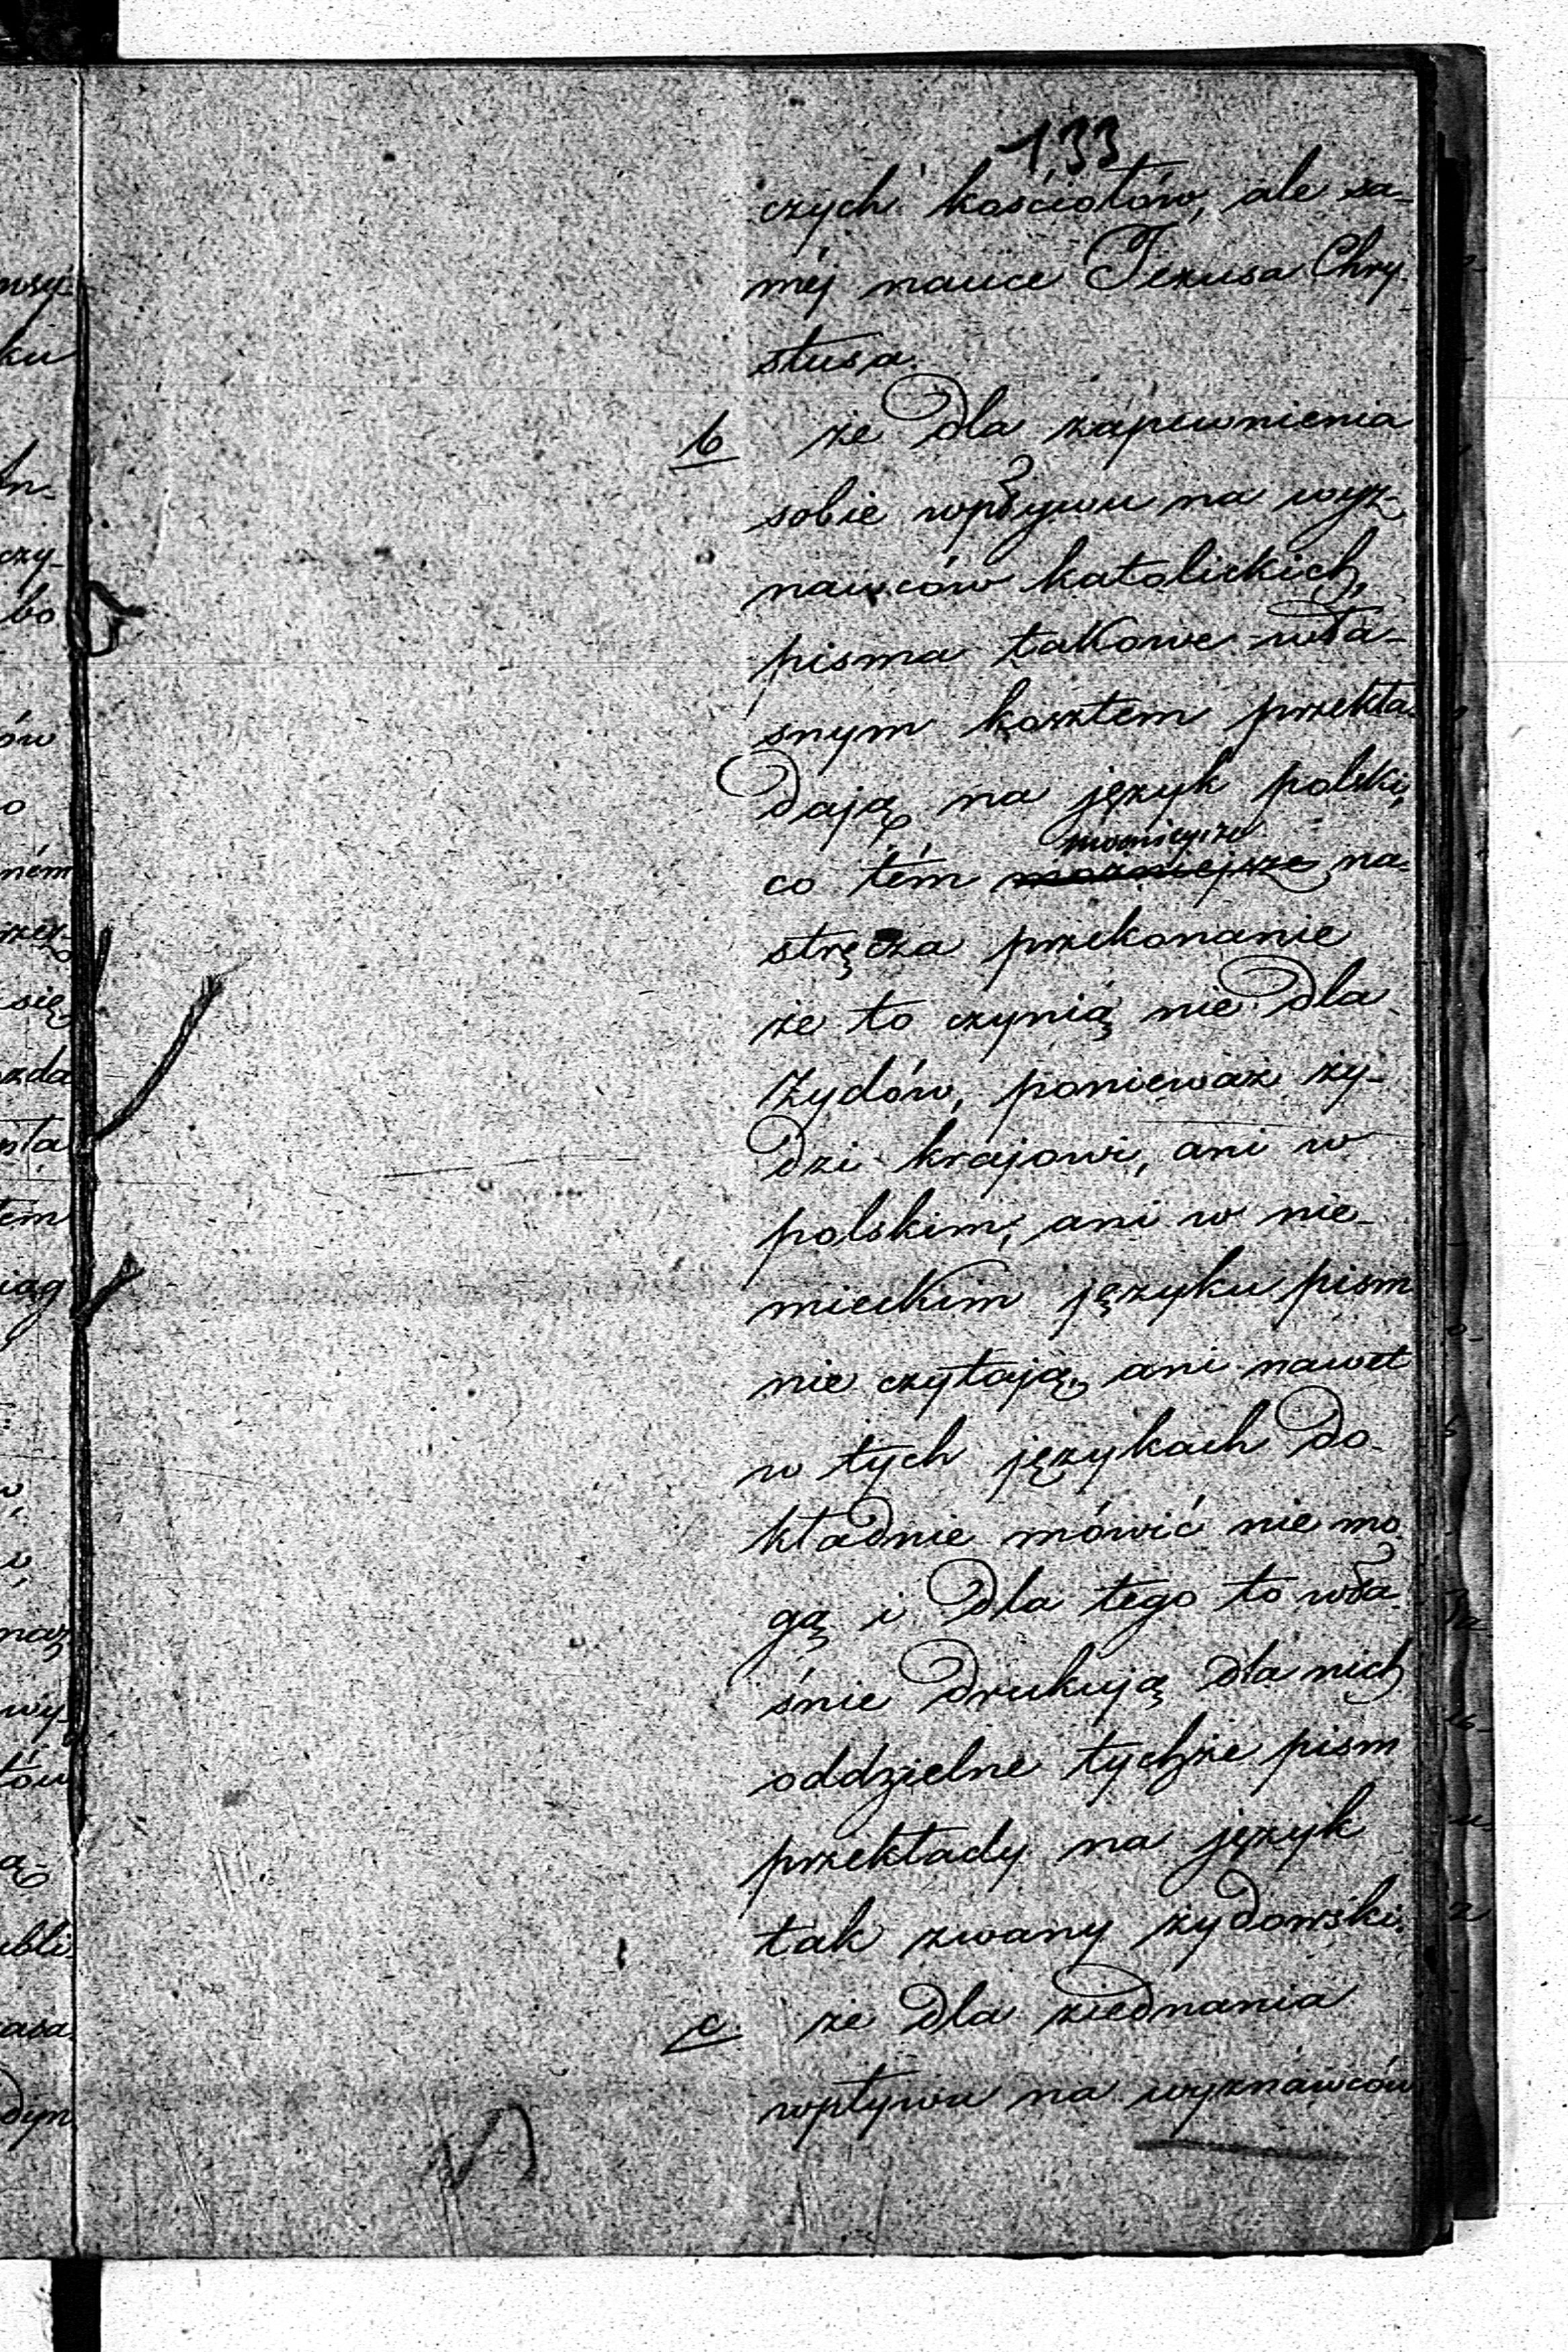 133
czych kościołów, ale sa-
méj nauce Jezusa Chry-
stusa.
b że dla zapewnienia
sobie wpływu na wyz-
nawców katolickich,
pisma takowe wła-
snym kosztem przekła-
dają na język polski,
co tém mocniejsze na-
stręcza przekonanie
że to czynią nie dla
Żydów, ponieważ ży-
dzi krajowi, ani w
polskim, ani w nie-
mieckim języku pism
nie czytają, ani nawet
w tych językach do-
kładnie mówić nie mo-
gą i dla tego to wła-
śnie drukują dla nich
oddzielne tychże pism
przekłady na język
tak zwany żydowski.
c. że dla ziednania
wpływu na wyznawców